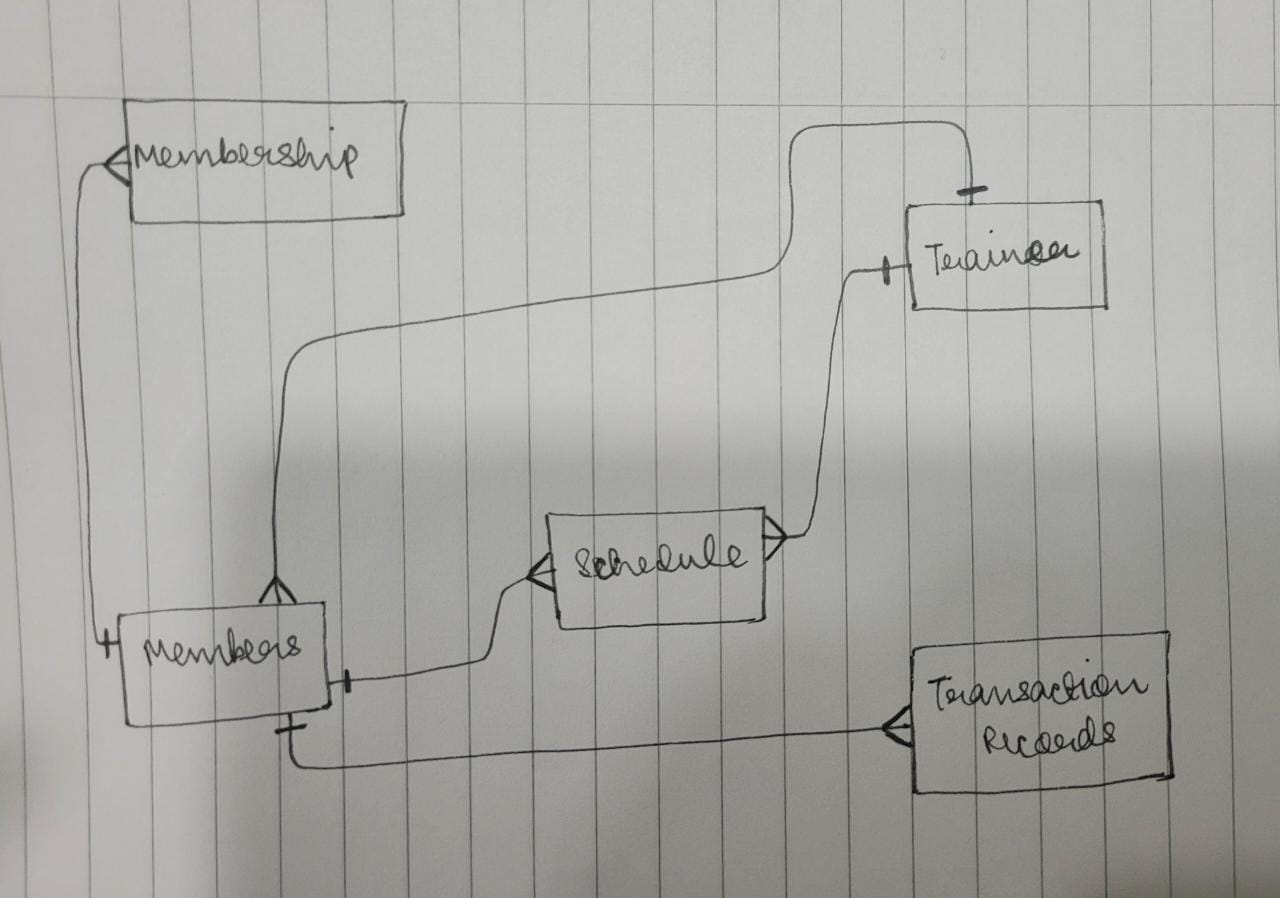 Membership
Trainer
Schedule
Members
Transaction
Records